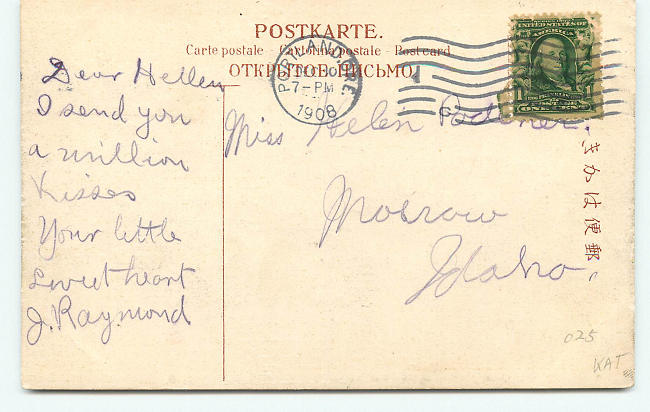 POSTKARTE.
Carte postale - Cartolina postale - Postcard
ОТКРЫТОЕ ПИСЬМО.
PORTLAND, ORE.
7-PM
1908
AMERICA
ONE CENT
Dear Hellen
I send you
a million
Kisses
Your little
sweet heart
J. Raymond
Miss Helen
Moscow
Idaho
郵便はかき
025
KAT